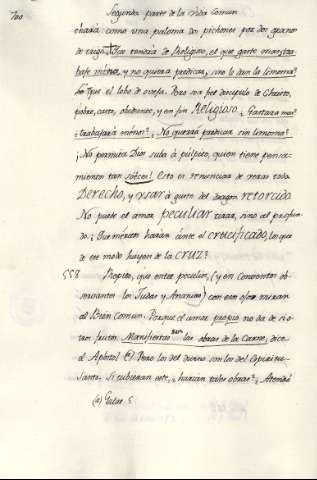 700
Segunda parte de la vida Comun
charia como una paloma dos pichones por dos granos
de trigo. Que tendria de Religioso, el que gaste
y no quiera predicar, sino le dan la limosna?
Lo que el lobo de oveja. Pero sea fiel discipulo de Christo,
pobre, casto, obediente, y en fin Religioso. ¿Gastara mas?
¿trabajará menos? ¿No querrá predicar sin limosna?
¡No permita Dios suba à pulpito, quien tiene pensa-
mientos tan soeces! Esto es renunciar de veras todo
Derecho, y usar à gusto del retorcido.
No puede el amar peculiar tirar, sino al profun-
do. ¿Que meritos harán ante el crucificado, los que
de ese modo huyen de la CRUZ?
558 Repito, que estos peculios, (y en Conventos ob-
servantes los Judas y Ananias) con esos ojos miran
al Bien Comun. Porque el amor propio no da de sí o-
tro fruto. Manifiestas sun las obras de la Carne, dice
el Apostol (a). Pero los del divino son los del Espiritu-
Santo. Si tubieran este, ¿harian tales obras? ¿Atende
(a) Galat. 5.